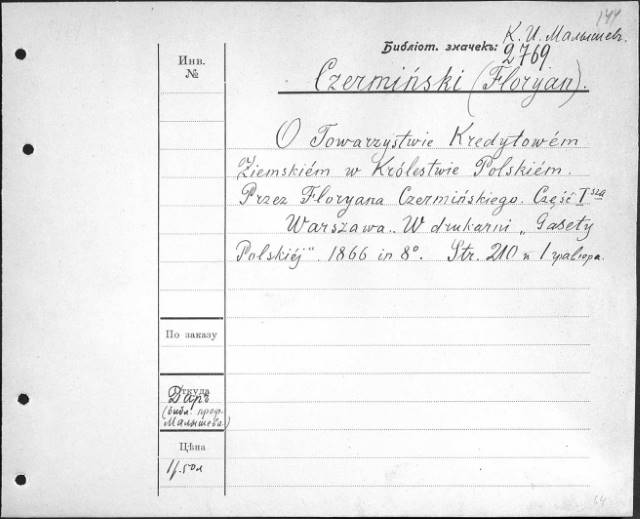 144
К. И. Малышев.
Библіот. значекъ:
2769
Инв.
№
Czermiński (Floryan).
O Towarzystwie Kredytowém
Ziemskiém w Królestwie Polskiém.
Przez Floryana Czermińskiego. Część I sza
Warszawa. W drukarni „Gazety
Polskiéj". 1866 in 8°. Str. 210 и 1
По заказу
Откуда
Даръ
(библ. проф.
Малышева)
Цѣна